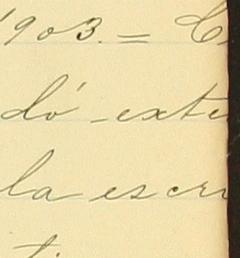 1903. =
dó exte
la escri